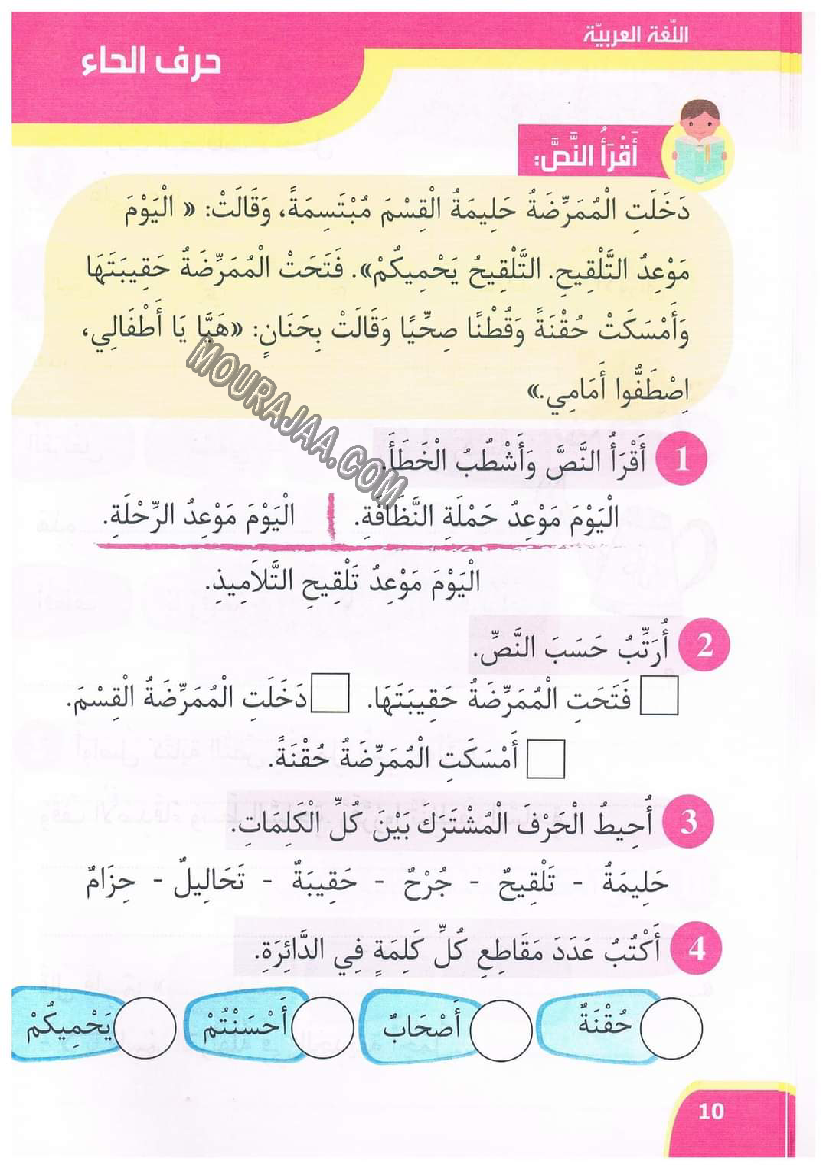 اللّغة العربيّة
حرف الحاء
أَقْرَأُ النَّصَّ:
دَخَلَتِ الْمُمَرِّضَةُ حَلِيمَةُ الْقِسْمَ مُبْتَسِمَةً، وَقَالَتْ: « الْيَوْمَ
مَوْعِدُ التَّلْقِيحِ. التَّلْقِيحُ يَحْمِيكُمْ». فَتَحَتْ الْمُمَرِّضَةُ حَقِيبَتَهَا
وَأَمْسَكَتْ حُقْنَةً وَقُطْنًا صِحِّيًا وَقَالَتْ بِحَنَانٍ: «هَيَّا يَا أَطْفَالِي،
اِصْطَفُّوا أَمَامِي.»
MOURAJAA.COM
1 أَقْرَأُ النَّصَّ وَأَشْطُبُ الْخَطَأَ.
الْيَوْمَ مَوْعِدُ حَمْلَةِ النَّظَافَةِ. الْيَوْمَ مَوْعِدُ الرِّحْلَةِ.
الْيَوْمَ مَوْعِدُ تَلْقِيحِ التَّلَامِيذِ.
2 أُرَتِّبُ حَسَبَ النَّصِّ.
فَتَحَتِ الْمُمَرِّضَةُ حَقِيبَتَهَا. دَخَلَتِ الْمُمَرِّضَةُ الْقِسْمَ.
أَمْسَكَتِ الْمُمَرِّضَةُ حُقْنَةً.
3 أُحِيطُ الْحَرْفَ الْمُشْتَرَكَ بَيْنَ كُلِّ الْكَلِمَاتِ.
حَلِيمَةُ - تَلْقِيحٌ - جُرْحٌ - حَقِيبَةٌ - تَحَالِيلٌ - حِزَامٌ
4 أَكْتُبُ عَدَدَ مَقَاطِعِ كُلِّ كَلِمَةٍ فِي الدَّائِرَةِ.
حُقْنَةٌ أَصْحَابٌ أَحْسَنْتُمْ يَحْمِيكُمْ
10